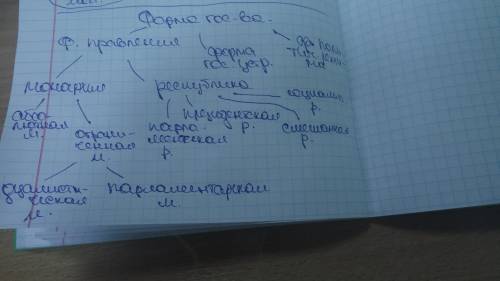 Форма гос-ва.
Ф. правления
форма
гос. устр.
монархия
республика
социалис.
р.
абсо-
лютная
м.
ограни-
ченная
м.
парла-
ментская
р.
президентская
р.
смешанная
р.
дуалисти-
ческая
м.
парламентарская
м.